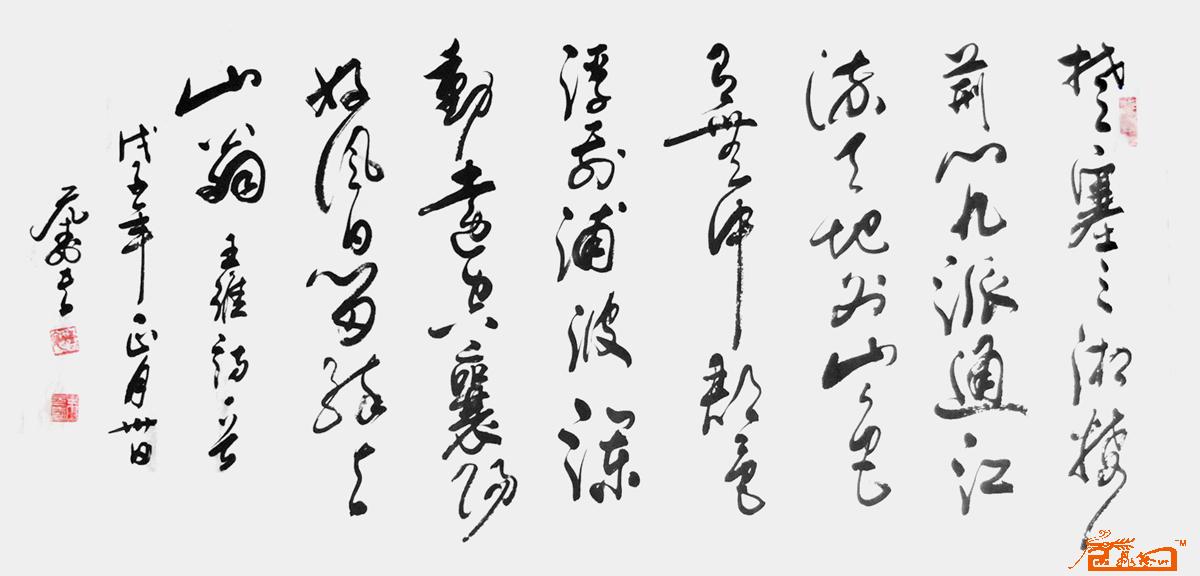 楚塞三湘接
荆门九派通江
流天地外山色
有無中郡邑
浮前浦波澜
動遠空襄陽
好风日留醉与
山翁 王維詩一首
戊子年正月卅日